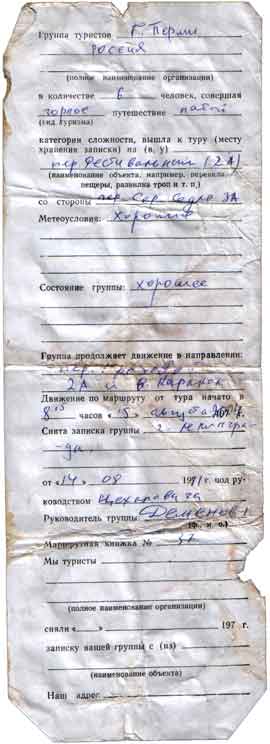 Группа туристов г. Пермь
РОССИЯ
(полное наименование организации)
в количестве 6 человек, совершая
горное путешествие пятой
(вид туризма)
категории сложности, вышла к туру (месту
хранения записки) на (в, у)
пер. Фестивальный (2А)
(наименование объекта, например, перевала
пещеры, развилка троп и т. п.)
со стороны пер. Сар 3А
Метеоусловия: Хорошие
Состояние группы: хорошее
Группа продолжает движение в направлении:
пер.
2А и в.
Движение по маршруту от тура начато в
8 15 часов «15» августа
Снята записка группы г.
от «14» 08 1991 г. под ру-
ководством
Руководитель группы: Деменов
(ф. и. о.)
Маршрутная книжка №
Мы туристы
(полное наименование организации)
сняли « » 197 г.
записку вашей группы с (из)
(наименование объекта)
Наш адрес